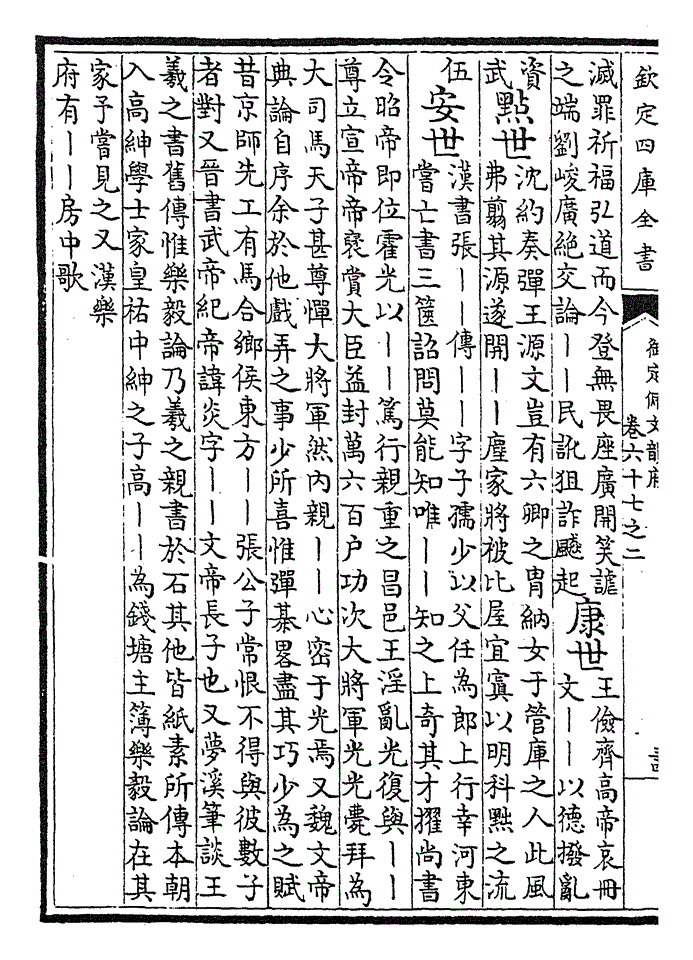 欽定四庫全書
御定佩文韻府
卷六十七之二
滅罪祈福弘道而今登無畏座廣開笑謔
之端劉峻廣絶交論｜｜民訛狙詐飈起
康世
王儉齊高帝哀冊
文｜｜以德撥亂
資
黠世
沈約奏彈王源文豈有六卿之胄納女于管庫之人此風
武
弗翦其源遂開｜｜塵家將被比屋宜寘以明科黜之流
伍
安世
漢書張｜｜傳｜｜字子孺少以父任為郎上行幸河東
嘗亡書三篋詔問莫能知唯｜｜知之上奇其才擢尚書
令昭帝即位霍光以｜｜篤行親重之昌邑王淫亂光復與｜｜
尊立宣帝帝襃賞大臣益封萬六百户功次大將軍光光薨拜為
大司馬天子甚尊憚大將軍然内親｜｜心密于光焉又魏文帝
典論自序余於他戲弄之事少所喜惟彈棊畧盡其巧少為之賦
昔京師先工有馬合鄉侯東方｜｜張公子常恨不得與彼數子
者對又晉書武帝紀帝諱炎字｜｜文帝長子也又夢溪筆談王
羲之書舊傳惟樂毅論乃羲之親書於石其他皆紙素所傳本朝
入高紳學士家皇祐中紳之子高｜｜為錢塘主簿樂毅論在其
家予嘗見之又漢樂
府有｜｜房中歌